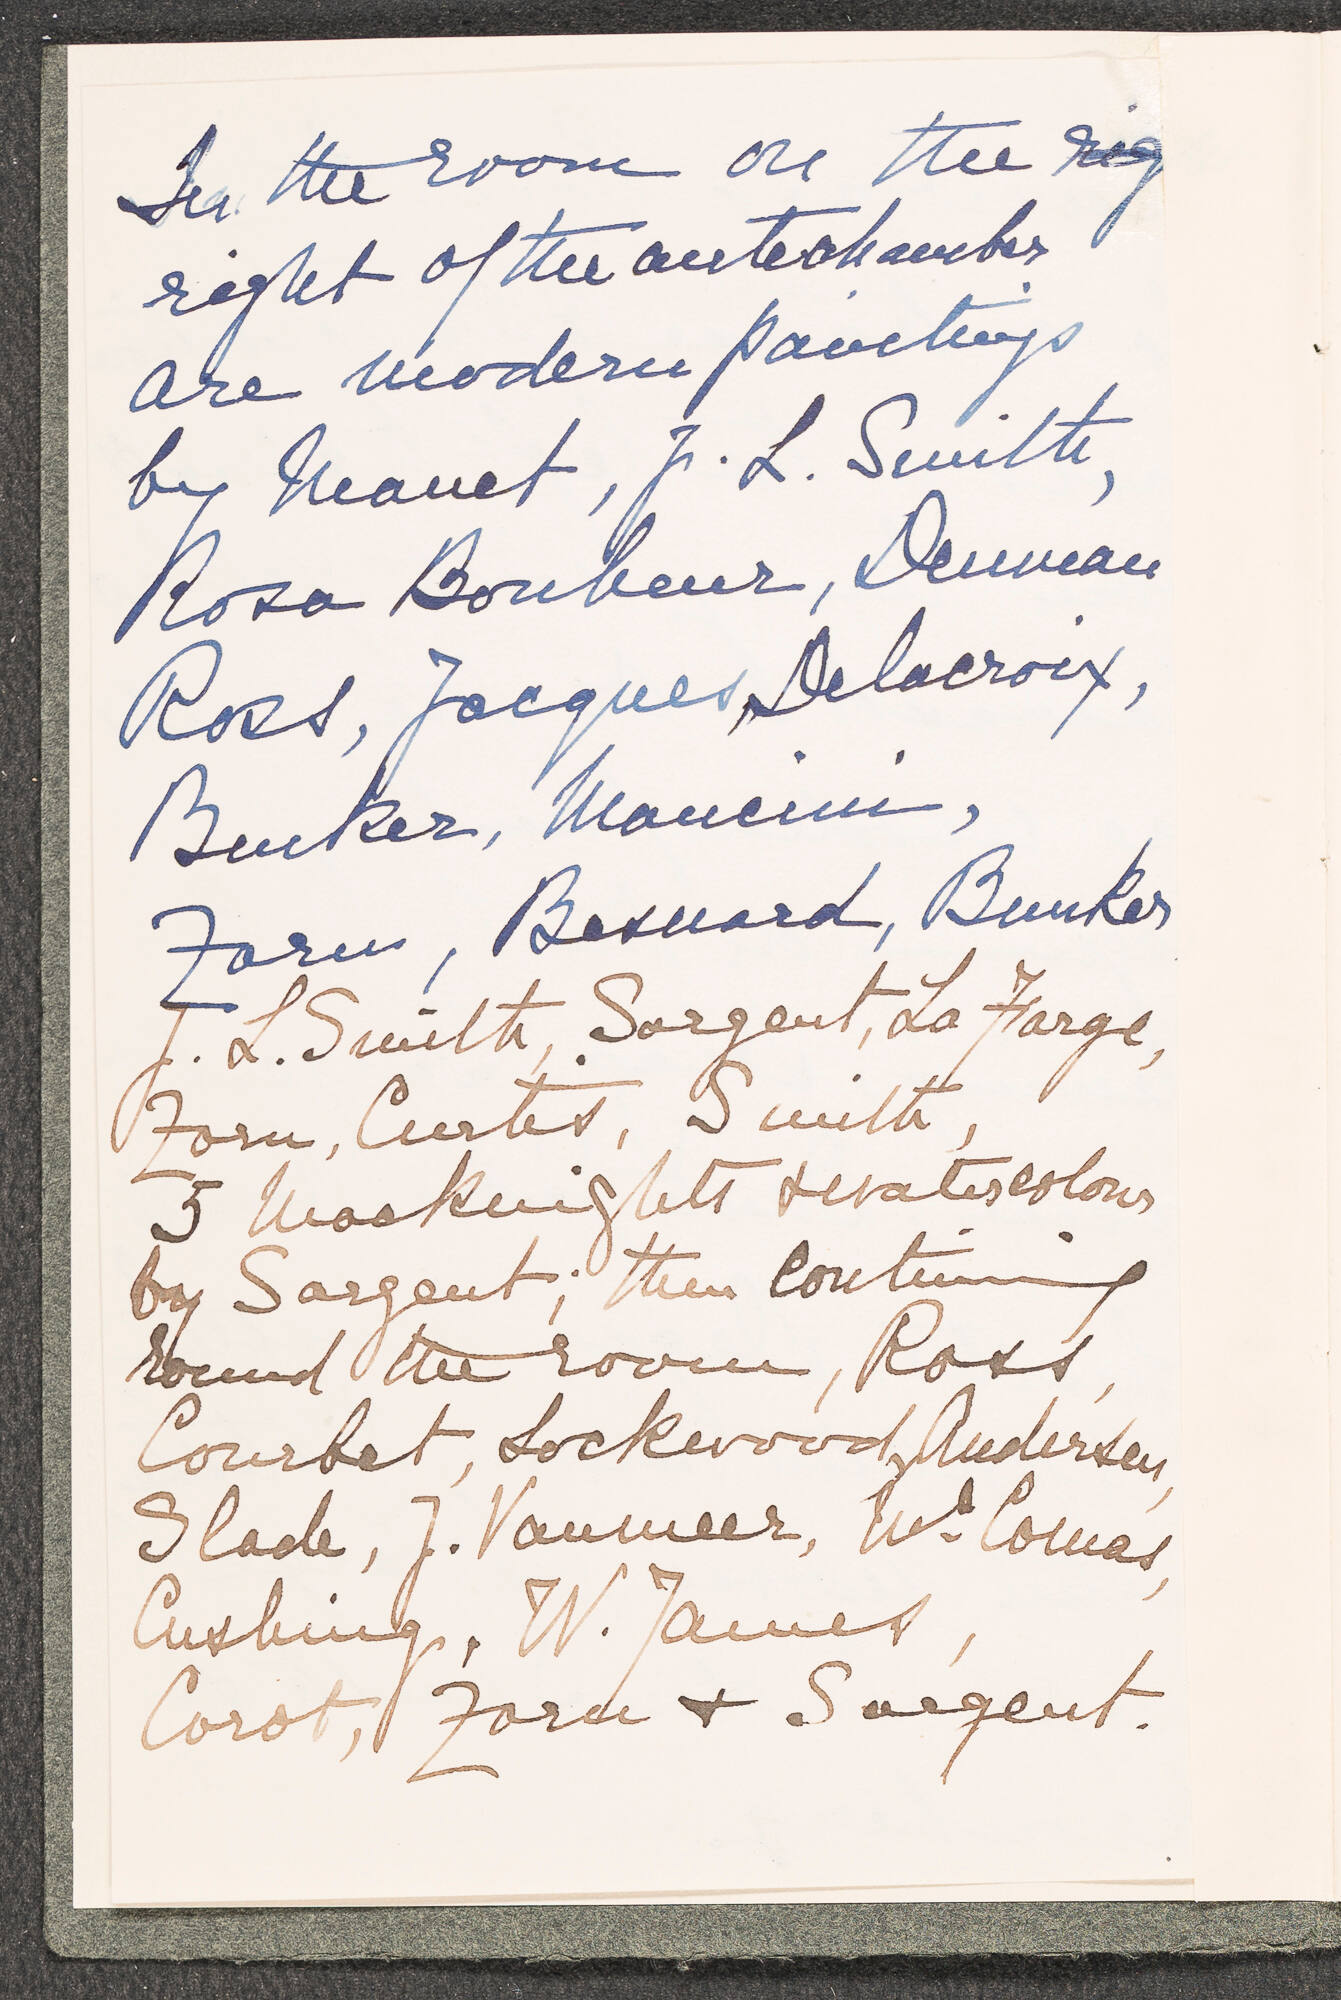 In the room on the rig
right of the antechamber
are modern paintings
by Manet, J. L. Smith,
Rosa Bonheur, Denman
Ross, Jacques, Delacroix,
Bunker, Mancini,
Zorn, Besnard, Bunker
J. L. Smith, Sargent, La Farge,
Zorn, Curtis, Smith,
5 Macknights & watercolours
by Sargent; then continuing
round the room, Ross,
Courbet, Lockwood, Andersen,
Slade, J. Vanmeer, Mc Comas,
Cushing, W. James,
Corot, Zorn + Sargent.